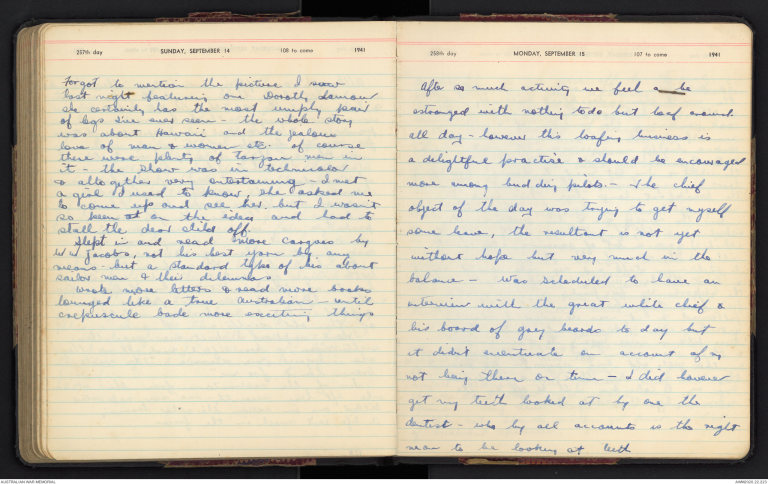 257th day SUNDAY, SEPTEMBER 14 108 to come 1941
Forgot to mention the picture I saw
last night featuring one Dorothy Lamour
she certainly has the most umply pair
of legs I've ever seen - the whole story
was about Hawaii and the jealous
love of man & women etc. of course
there were plenty of tarzan men in
it - the show was in technicolor
& altogether very entertaining - I met
a girl I used to know, she asked me
to come up and see her, but I wasn't
so keen at on the idea and had to
stall the dear child off.
Slept in and read more cargoes by
W W Jacobs, not his best yarn by any
means - but a standard type of his about
sailor men & their dilemmas
Wrote more letters & read more books
lounged like a true Australian - until
crepuscule bade more exciting things
258th day MONDAY, SEPTEMBER 15 107 to come 1941
After so much activity we feel a be
estranged with nothing to do but loaf around
all day - however this loafing business is
a delightful practise & should be encouraged
more among budding pilots. - The chief
object of the day was trying to get myself
some leave, the resultant is not yet
without hope but very much in the
balance - was scheduled to have an
interview with the great white chief &
his board of grey beards to day but
it didn't eventuate on account of my
not being there on time - I did however
get my teeth looked at by one the
dentist - who by all accounts is the right
man to be looking at teeth
AUSTRALIAN WAR MEMORIAL